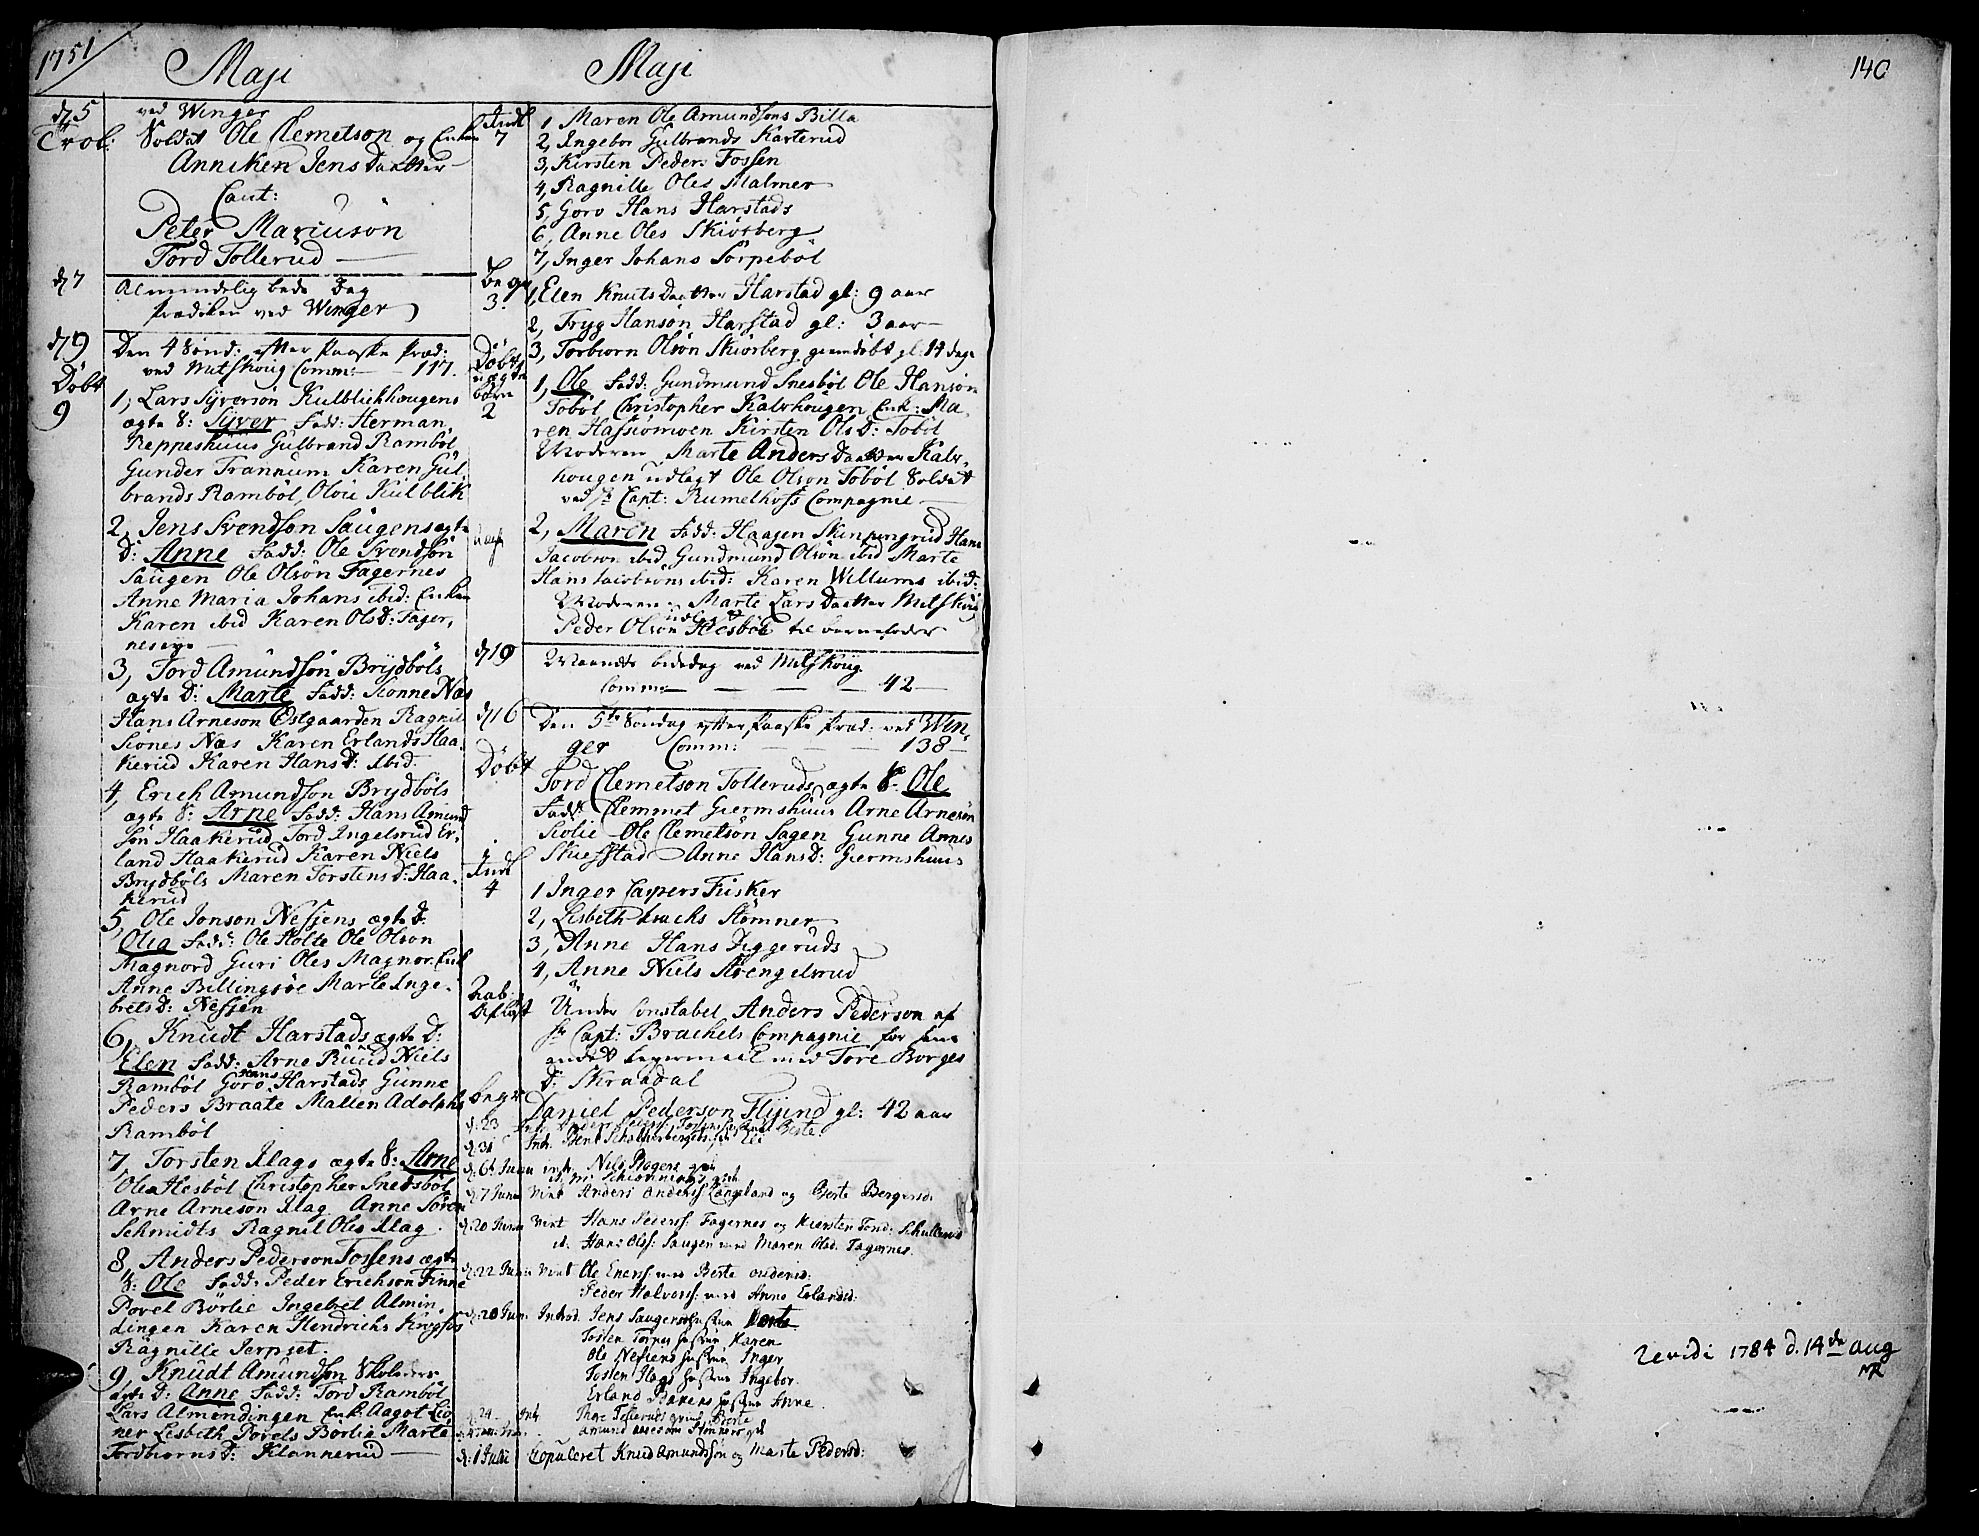 1751
Maji
d 5
Trol:
ved Winger
Soldat Ole Clemetson og Enken
Anniken Jens Daatter
Caut:
Peter Mariuson
Tord Tollerud
d 7
Almindelig bede Dag
Prædiken ved Winger
d 9
Den 4 Sönd: efter Paaske Præd:
ved Mitskoug Comm: — 117.
Döbt
9
1, Lars Syverson Kulblickhougens
ægte S: Syver Fadd: Herman
Reppeshuus Gulbrand Ramböl
Gunder Trannum Karen Gul
brands Ramböl Olöu Kulblik
2, Jens Svendsön Saugens ægte
D: Anne Fadd: Ole Svendsön
Saugen Ole Olsön Fagernes
Anne Maria Johans ibid: Enken
Karen ibid Karen Olsd: Fager,
neseye
3, Tord Amundsön Brydböls
ægte D: Marte Fadd: Sionne Næs
Hans Arneson Östgaarden Ragnil
Siones Næs Karen Erlands Haa,
kerud Karen Hans D: ibid:
4, Erich Amundsön Brydböls
ægte S: Arne Fadd: Hans Amund
sön Haakerud Tord Ingelsrud Er,
land Haakerud Karen Niels
Brydböls Maren Torstens d: Haa,
kerud
5, Ole Jonson Nessens ægte D:
Olia Fadd: Ole Holte Ole Olson
Magnord Guri Oles Magnor Enk
Anne Billingsöe Marte Inge,
brets D: Nessen
6, Knudt Harstads ægte D:
Elen Fadd: Arne Ruud Niels
Ramböl Goro Hans Harstads Gunne
Peders Braate Mallen Adolphs
Ramböl
7, Torsten Mags ægte S: Arne
Ole Hesböl Christopher Snedsböl
Arne Arneson Mag Anne Sören
Schmidts Ragnil Oles Mag
8, Anders Pederson Fossens ægte
S: Ole Fadd: Peder Erichson Finne
Povel Börlie Ingebret Almin,
dingen Karen Hendrichs
Ragnille Jerpset.
9, Knudt Amundsön
ægte D: Anne Fadd: Tord Ramböl
Lars Almendingen Enk: Aagot Lier
ner Lisbeth Povels Börlie Marte
Tordbiorns D: Klannerud
Maji
Indl
7
1 Maren Ole Amundsöns Billa
2, Ingebor Gulbrands Karterud
3, Kirsten Peders Fossen
4, Ragnille Oles Malmer
5, Goro Hans Harstads
6, Anne Oles Skiörberg
7, Inger Johans Sörpeböl
Begr
3.
1, Elen Knuts Daatter Harstad gl: 9 aar
2, Tryg Hansön Harstad gl: 3 aar
3, Torbiorn Olsön Skiörberg giemdöbt gl: 14 dage
Döbt
uægte
börn
2
1, Ole Fadd: Gundmund Snesböl Ole Hansön
Toböl Christopher Kalvhougen Enk: Ma,
ren Hassiomoen Kirsten Ols D: Toböl
Moderen Marte Anders Daatter Kalv,
hougen udlagt Ole Olson Toböl Soldat
ved Hr Capt: Rumelhoffs Compagnie
2, Maren Fadd: Haagen Skinpengrud Hans
Jacobson ibid Gundmund Olsön ibid Marte
Hans Jacobsöns ibid: Karen Willums ibid:
Moderen: Marte Lars Daatter Mitskoug
Peder Olsön Hesböl udlagt til barnefader
d 19
Maaneds bededag ved Mitskoug
Comm: — — — 42
d 16
Den 5te Söndag efter Paaske Præd: ved Win,
ger Comm: — — — 138
Döbt
Tord Clemetson Tolleruds ægte S: Ole
Fadd: Clemmet Giermshuus Arne Arnesön
Siolie Ole Clemetsön Sagen Gunne Annes
Skiefstad Anne Hans D: Giermshuus
Indl
4
1 Inger Caspers Fisker
2, Lisbeth Stömner
3, Anne Hans Diggeruds
4, Anne Niels Övengelsrud
Under Constabel Anders Pederson af
Hr Capt: Brachels Compagnie for sin
andet leyermaal med Tore Borges
D: Skraadal
Begr
Daniel Pederson Flijend gl: 42 aar
d: 23
Berte
d: 31 Intr.
d: 6t Junii intr. Nils Rogers
d: 7 Junii Vint Anders Anders: Langeland og Berte Bergersd.
d: 20 Junii Vint Hans Peders: Fagernes og Kiersten Tord: Schullerud
it. Hans Olss: Saugen med Maren Olsd: Fagernes.
d: 22 Junii Vint Ole Eners: med Berte
Peder Halvors: med Anne Erlandsd:
Jun: Introd. Jens Saugens hustrue Marte
Tosten Tornes hustrue Karen
Ole Nessens hustrue Inger
Tosten Mags hustrue Ingebor.
Erland hustrue Anne.
d: 24 Intr.
d: 1 Julii Copuleret Knud Amundssön og Marte Pedersd:
140
revidi 1784 d. 14de aug